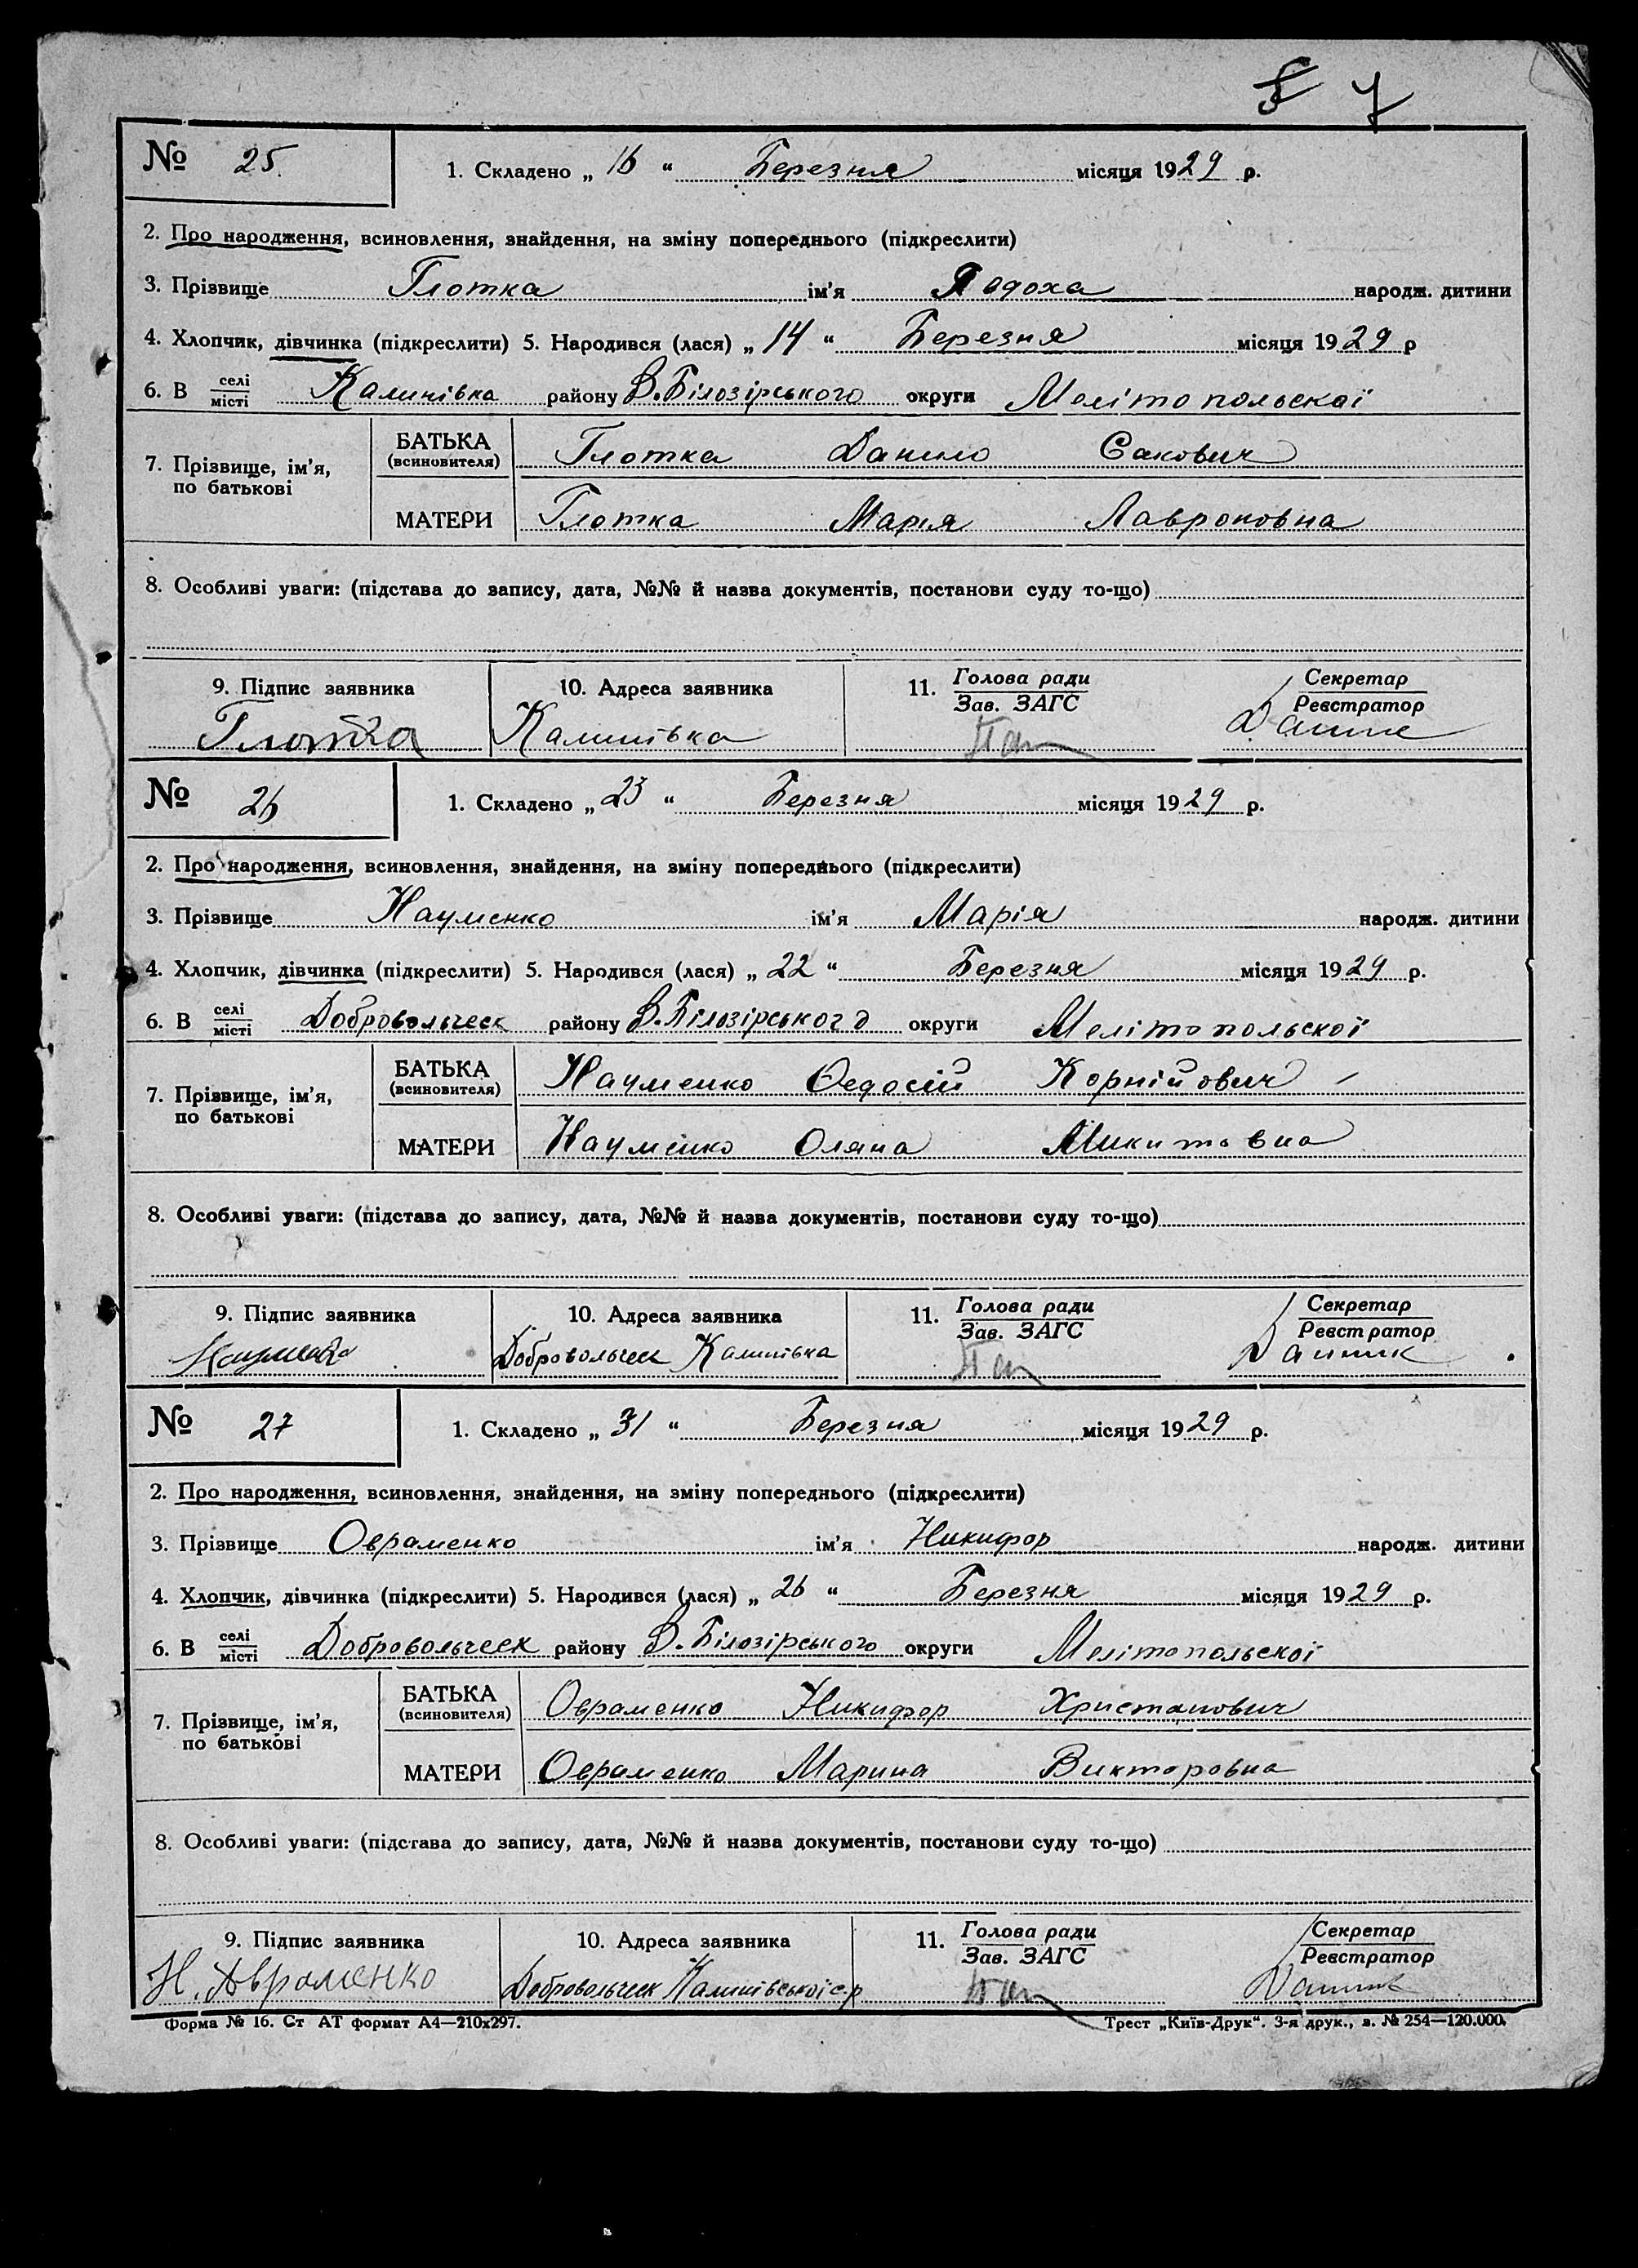 7
№ 25. 1. Складено „ 16 “ Березня місяця 1929 р.
2. Про народження, всиновлення, знайдення, на зміну попереднього (підкреслити)
3. Прізвище Глотка ім'я народж. дитини
4. Хлопчик, дівчинка (підкреслити) 5. Народився (лася) „ 14 “ Березня місяця 1929 р
6. В селі/місті Калинівка району В.Білозірського округи Мелітопольскої
7. Прізвище, ім'я, по батькові БАТЬКА (всиновителя) Глотка Данило Сакович
МАТЕРИ Глотка Марія Лавроновна
8. Особливі уваги: (підстава до запису, дата, №№ й назва документів, постанови суду то-що)
9. Підпис заявника 10. Адреса заявника 11. Голова ради/Зав. ЗАГС Секретар/Реєстратор
Глотка Калинівка
№ 26 1. Складено „ 23 “ Березня місяця 1929 р.
2. Про народження, всиновлення, знайдення, на зміну попереднього (підкреслити)
3. Прізвище Науменко ім'я Марія народж. дитини
4. Хлопчик, дівчинка (підкреслити) 5. Народився (лася) „ 22 “ Березня місяця 1929 р.
6. В селі/місті Добровольческ району В.Білозірського округи Мелітопольскої
7. Прізвище, ім'я, по батькові БАТЬКА (всиновителя) Науменко Федосій Корнійович
МАТЕРИ Науменко Оляна Микитовна
8. Особливі уваги: (підстава до запису, дата, №№ й назва документів, постанови суду то-що)
9. Підпис заявника 10. Адреса заявника 11. Голова ради/Зав. ЗАГС Секретар/Реєстратор
Науменко Добровольческ Калинівка
№ 27 1. Складено „ 31 “ Березня місяця 1929 р.
2. Про народження, всиновлення, знайдення, на зміну попереднього (підкреслити)
3. Прізвище Овраменко ім'я Никифор народж. дитини
4. Хлопчик, дівчинка (підкреслити) 5. Народився (лася) „ 26 “ Березня місяця 1929 р.
6. В селі/місті Добровольческ району В.Білозірського округи Мелітопольскої
7. Прізвище, ім'я, по батькові БАТЬКА (всиновителя) Овраменко Никифор Христанович
МАТЕРИ Овраменко Марина Викторовна
8. Особливі уваги: (підстава до запису, дата, №№ й назва документів, постанови суду то-що)
9. Підпис заявника 10. Адреса заявника 11. Голова ради/Зав. ЗАГС Секретар/Реєстратор
Н. Авраменко Добровольческ Калинівської с.р
Форма № 16. Ст АТ формат А4—210x297. Трест „Київ-Друк“. 3-я друк., з. № 254—120.000.